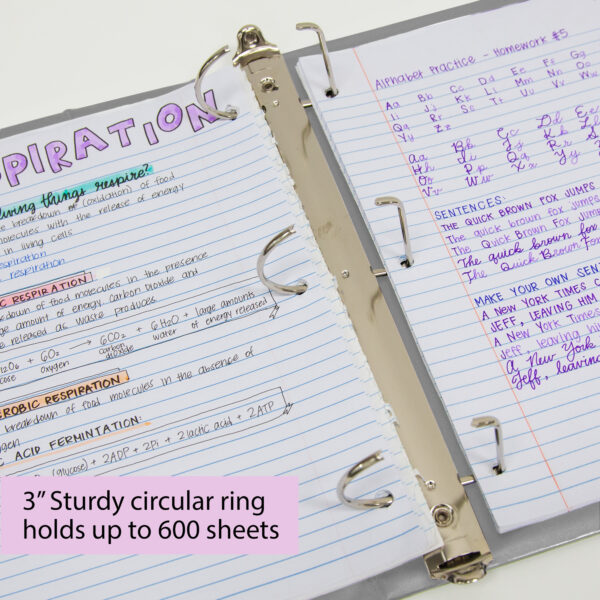 PIRATION
living things respire?
breakdown of (oxidation) of food
molecules with the release of energy
in living cells
respiration
respiration
RESPIRATION
down of food molecules in the presence
amount of energy. Carbon Dioxide and
released as waste products
+ 6O₂ → 6CO₂ + 6H₂O + large amounts
oxygen carbon dioxide water of energy released
EROBIC RESPIRATION
breakdown of food molecules in the absence of
ACID FERMINTATION:
(glucose) + 2ADP + 2Pi → 2 lactic acid + 2ATP
Alphabet Practice - Homework #5
Aa Bb Cc Dd Ee Ff Gg
Ii Jj Kk Ll Mm Nn Oo
Qq Rr Ss Tt Uu Vv Ww
Yy Zz
Aa Bb Cc Dd Ee
Hh Ii Jj Kk Ll
Oo Pp Qq Rr Ss
Vv Ww Xx Yy
SENTENCES:
THE QUICK BROWN FOX JUMPS
The quick brown fox jumps
The Quick Brown Fox Jumps
The quick brown fox
The Quick Brown Fox
MAKE YOUR OWN SENT
A NEW YORK TIMES C
JEFF, LEAVING HIM
A New York Times
Jeff, leaving him
A New York
Jeff, leaving
3” Sturdy circular ring
holds up to 600 sheets